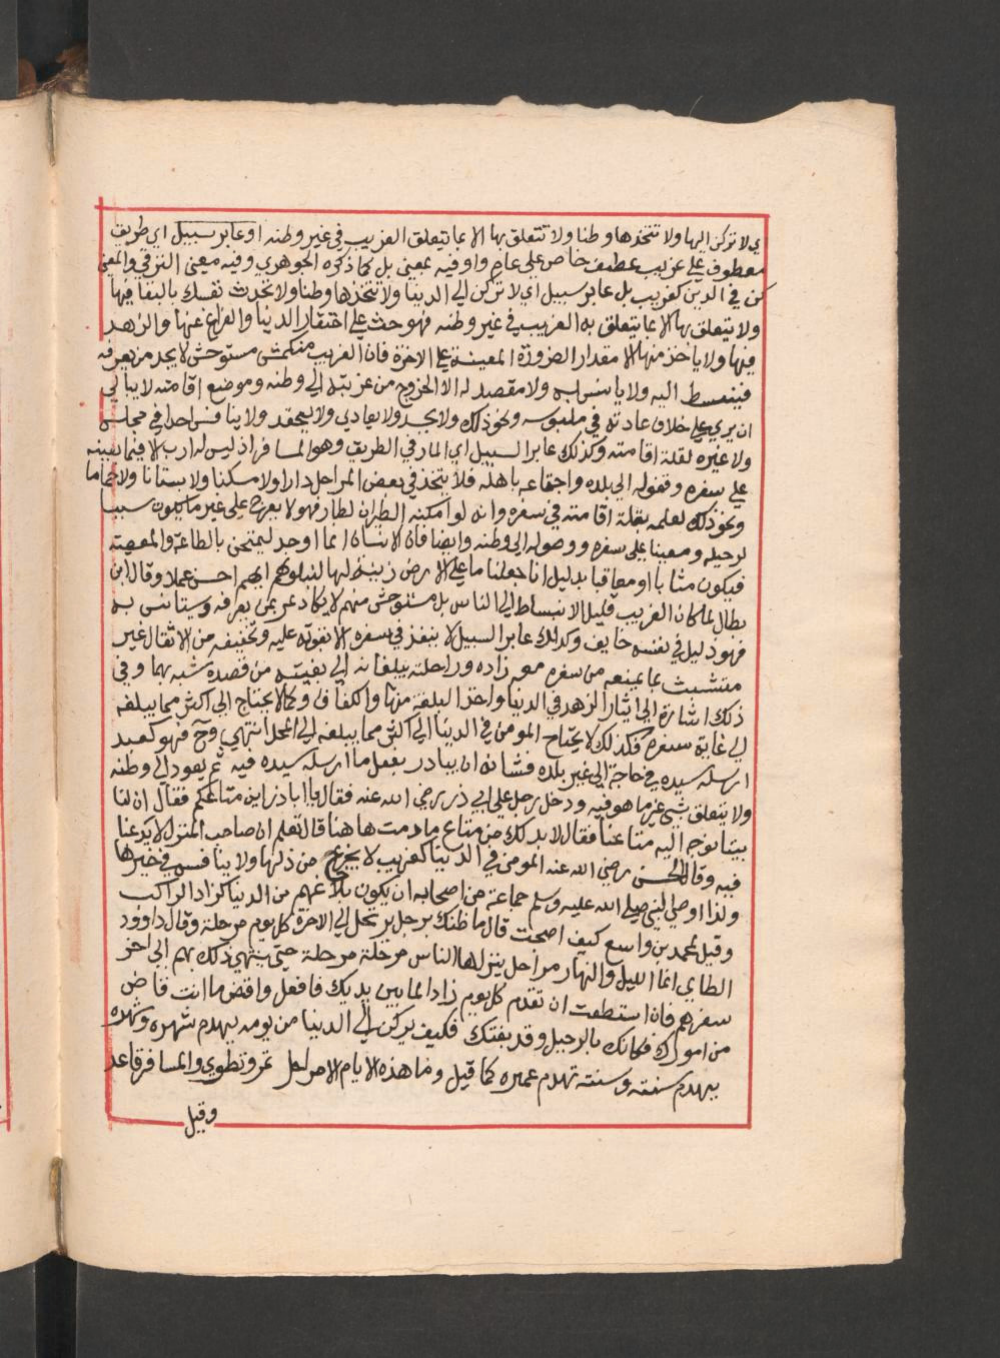 ي لا تركن اليها ولا تتخذها وطنا ولا تتعلق بها الا بما يتعلق الغريب في غير وطنه او عابر سبيل اي طريق
معطوف على غريب عطف خاص على عام واو فيه بمعنى بل كما ذكره الجوهري وفيه معنى الترقي والمعنى
كن في الدين كغريب بل عابر سبيل اي لا تركن الى الدنيا ولا تتخذها وطنا ولا تحدث نفسك بالبقا فيها
ولا يتعلق بها الا بما يتعلق به الغريب في غير وطنه فهو حث على احتقار الدنيا والفراغ عنها والزهد
فيها ولا ياخذ منها الا مقدار الضرورة المعينة على الاخرة فان الغريب منكمش مستوحش لا يجد من يعرفه
فينبسط اليه ولا ياتنس به ولا مقصد له الا الخروج من غربته الى وطنه وموضع اقامته لا يبالي
ان يرى على خلاف عادته في ملبوسه ونحو ذلك ولا يحسد ولا يعادي ولا يحقد ولا ينافس احدا في مجلسه
ولا غيره لقلة اقامته وكذلك عابر السبيل اي المار في الطريق وهو المسافر اذ ليس له ارب الا فيما يعينه
على سفره وقفوله الى بلده واجتماعه باهله فلا يتخذ في بعض المراحل دارا ولا مسكنا ولا بستانا ولا حماما
ونحو ذلك لعلمه بقلة اقامته في سفره وانه لو امكنه الطيران لطار فهو لا يعرج على غير ما يكون سببا
لرحيله ومعينا على سفره ووصوله الى وطنه وايضا فان الانسان انما اوجد ليمتحن بالطاعة والمعصية
فيكون مثابا او معاقبا بدليل انا جعلنا ما على الارض زينة لها لنبلوهم ايهم احسن عملا وقال ابن
بطال لما كان الغريب قليل الانبساط الى الناس بل مستوحش منهم لا يكاد يمر بمن يعرفه ويستانس به
فهو ذليل في نفسه خايف وكذلك عابر السبيل لا ينفذ في سفره الا بقوته عليه وتخفيفه من الاثقال غير
متشبث بما يمنعه من سفره معه زاده وراحلته يبلغانه الى بغيته من قصده شبه بهما وفي
ذلك اشارة الى ايثار الزهد في الدنيا واخذ البلغة منها والكفاف وكما لا يحتاج الى اكثر مما يبلغه
الى غاية سفره فكذلك لا يحتاج المومن في الدنيا الى اكثر مما يبلغه الى المحل انتهى وح فهو كعبد
ارسله سيده في حاجة الى غير بلده فشانه ان يبادر بفعل ما ارسله سيده فيه ثم يعود الى وطنه
ولا يتعلق بشي غير ما هو فيه ودخل رجل على ابي ذر رضي الله عنه فقال يا ابا ذر اين متاعكم فقال ان لنا
بيتا نوجه اليه متاعنا فقال لا بد لك من متاع ما دمت ها هنا قال لتعلم ان صاحب المنزل لا يدعنا
فيه وقال الحسن رضي الله عنه المومن في الدنيا كغريب لا يجزع من ذلها ولا ينافس في خيرها
ولذا اوصى النبي صلى الله عليه وسلم جماعة من اصحابه ان يكون بلاغهم من الدنيا كزاد الراكب
وقيل لمحمد بن واسع كيف اصبحت قال ما ظنك برجل يرتحل الى الاخرة كل يوم مرحلة وقال داوود
الطاي انما الليل والنهار مراحل ينزلها الناس مرحلة مرحلة حتى ينتهي ذلك بهم الى اخر
سفرهم فان استطعت ان تقدم كل يوم زادا لما بين يديك فافعل واقض ما انت قاض
من امورك فكانك بالرحيل وقد بغتك فكيف يركن الى الدنيا من يومه يهدم شهره وشهره
يهدم سنته وسنته تهدم عمره كما قيل وما هذه الايام الا مراحل تمر وتطوى والمسافر قاعد
وقيل